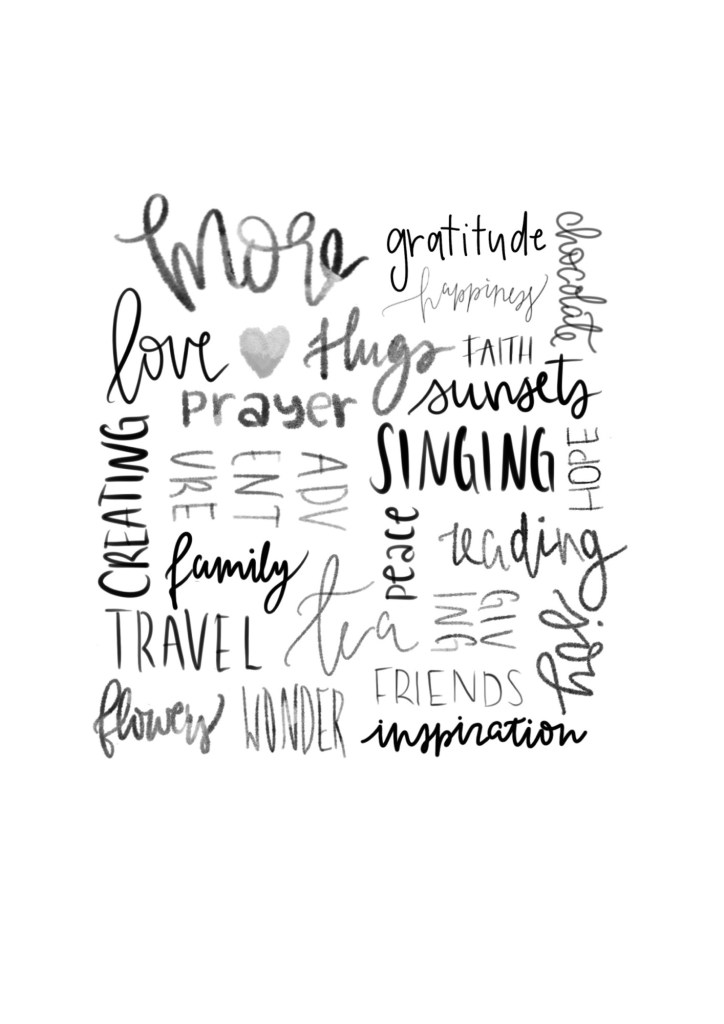 more
gratitude
chocolate
happiness
love
Hugs
FAITH
sunsets
prayer
CREATING
ADV
ENT
URE
SINGING
HOPE
peace
reading
family
tea
GIV
ING
joy
TRAVEL
FRIENDS
flowers
WONDER
inspiration